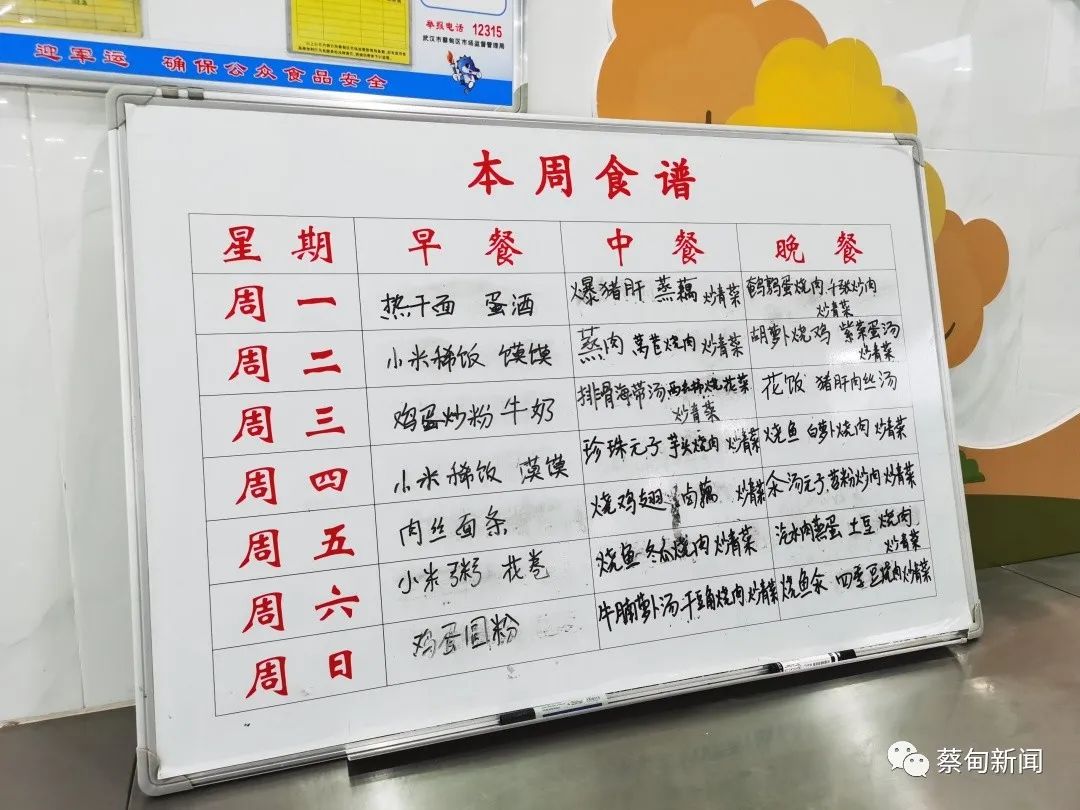 举报电话 12315
武汉市蔡甸区市场监督管理局
迎军运 确保公众食品安全
本周食谱
星期 早餐 中餐 晚餐
周一 热干面 蛋酒 爆猪肝 蒸藕 炒青菜 鹌鹑蛋烧肉 千张炒肉 炒青菜
周二 小米稀饭 馍馍 蒸肉 莴苣烧肉 炒青菜 胡萝卜烧鸡 紫菜蛋汤 炒青菜
周三 鸡蛋炒粉 牛奶 排骨海带汤 西红柿烧花菜 炒青菜 花饭 猪肝肉丝汤
周四 小米稀饭 馍馍 珍珠元子 芋头烧肉 炒青菜 烧鱼 白萝卜烧肉 炒青菜
周五 肉丝面条 烧鸡翅 卤藕 炒青菜 汆汤元子 苕粉炒肉 炒青菜
周六 小米粥 花卷 烧鱼 冬瓜烧肉 炒青菜 汽水肉蒸蛋 土豆烧肉 炒青菜
周日 鸡蛋圆粉 牛腩萝卜汤 干豆角烧肉 炒青菜 烧鱼汆 四季豆烧肉 炒青菜
蔡甸新闻